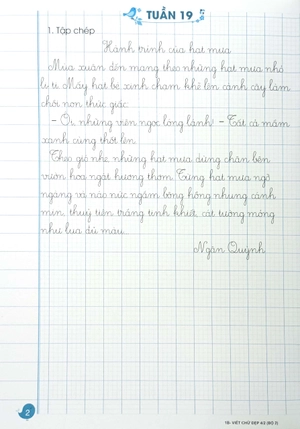 TUẦN 19
1. Tập chép
Hành trình của hạt mưa
Mùa xuân đến mang theo những hạt mưa nhỏ
li ti. Mấy hạt bé xinh chạm khẽ lên cành cây làm
chồi non thức giấc.
- Ôi những viên ngọc lóng lánh! - Tất cả mầm
xanh cùng thốt lên.
Theo gió nhẹ, những hạt mưa dừng chân bên
vườn hoa ngát hương thơm. Từng hạt mưa ngỡ
ngàng và náo nức ngắm bông hồng nhung cánh
mịn, thuỷ tiên trắng tinh khiết, cát tường mỏng
như lụa đủ màu...
Ngân Quỳnh
2